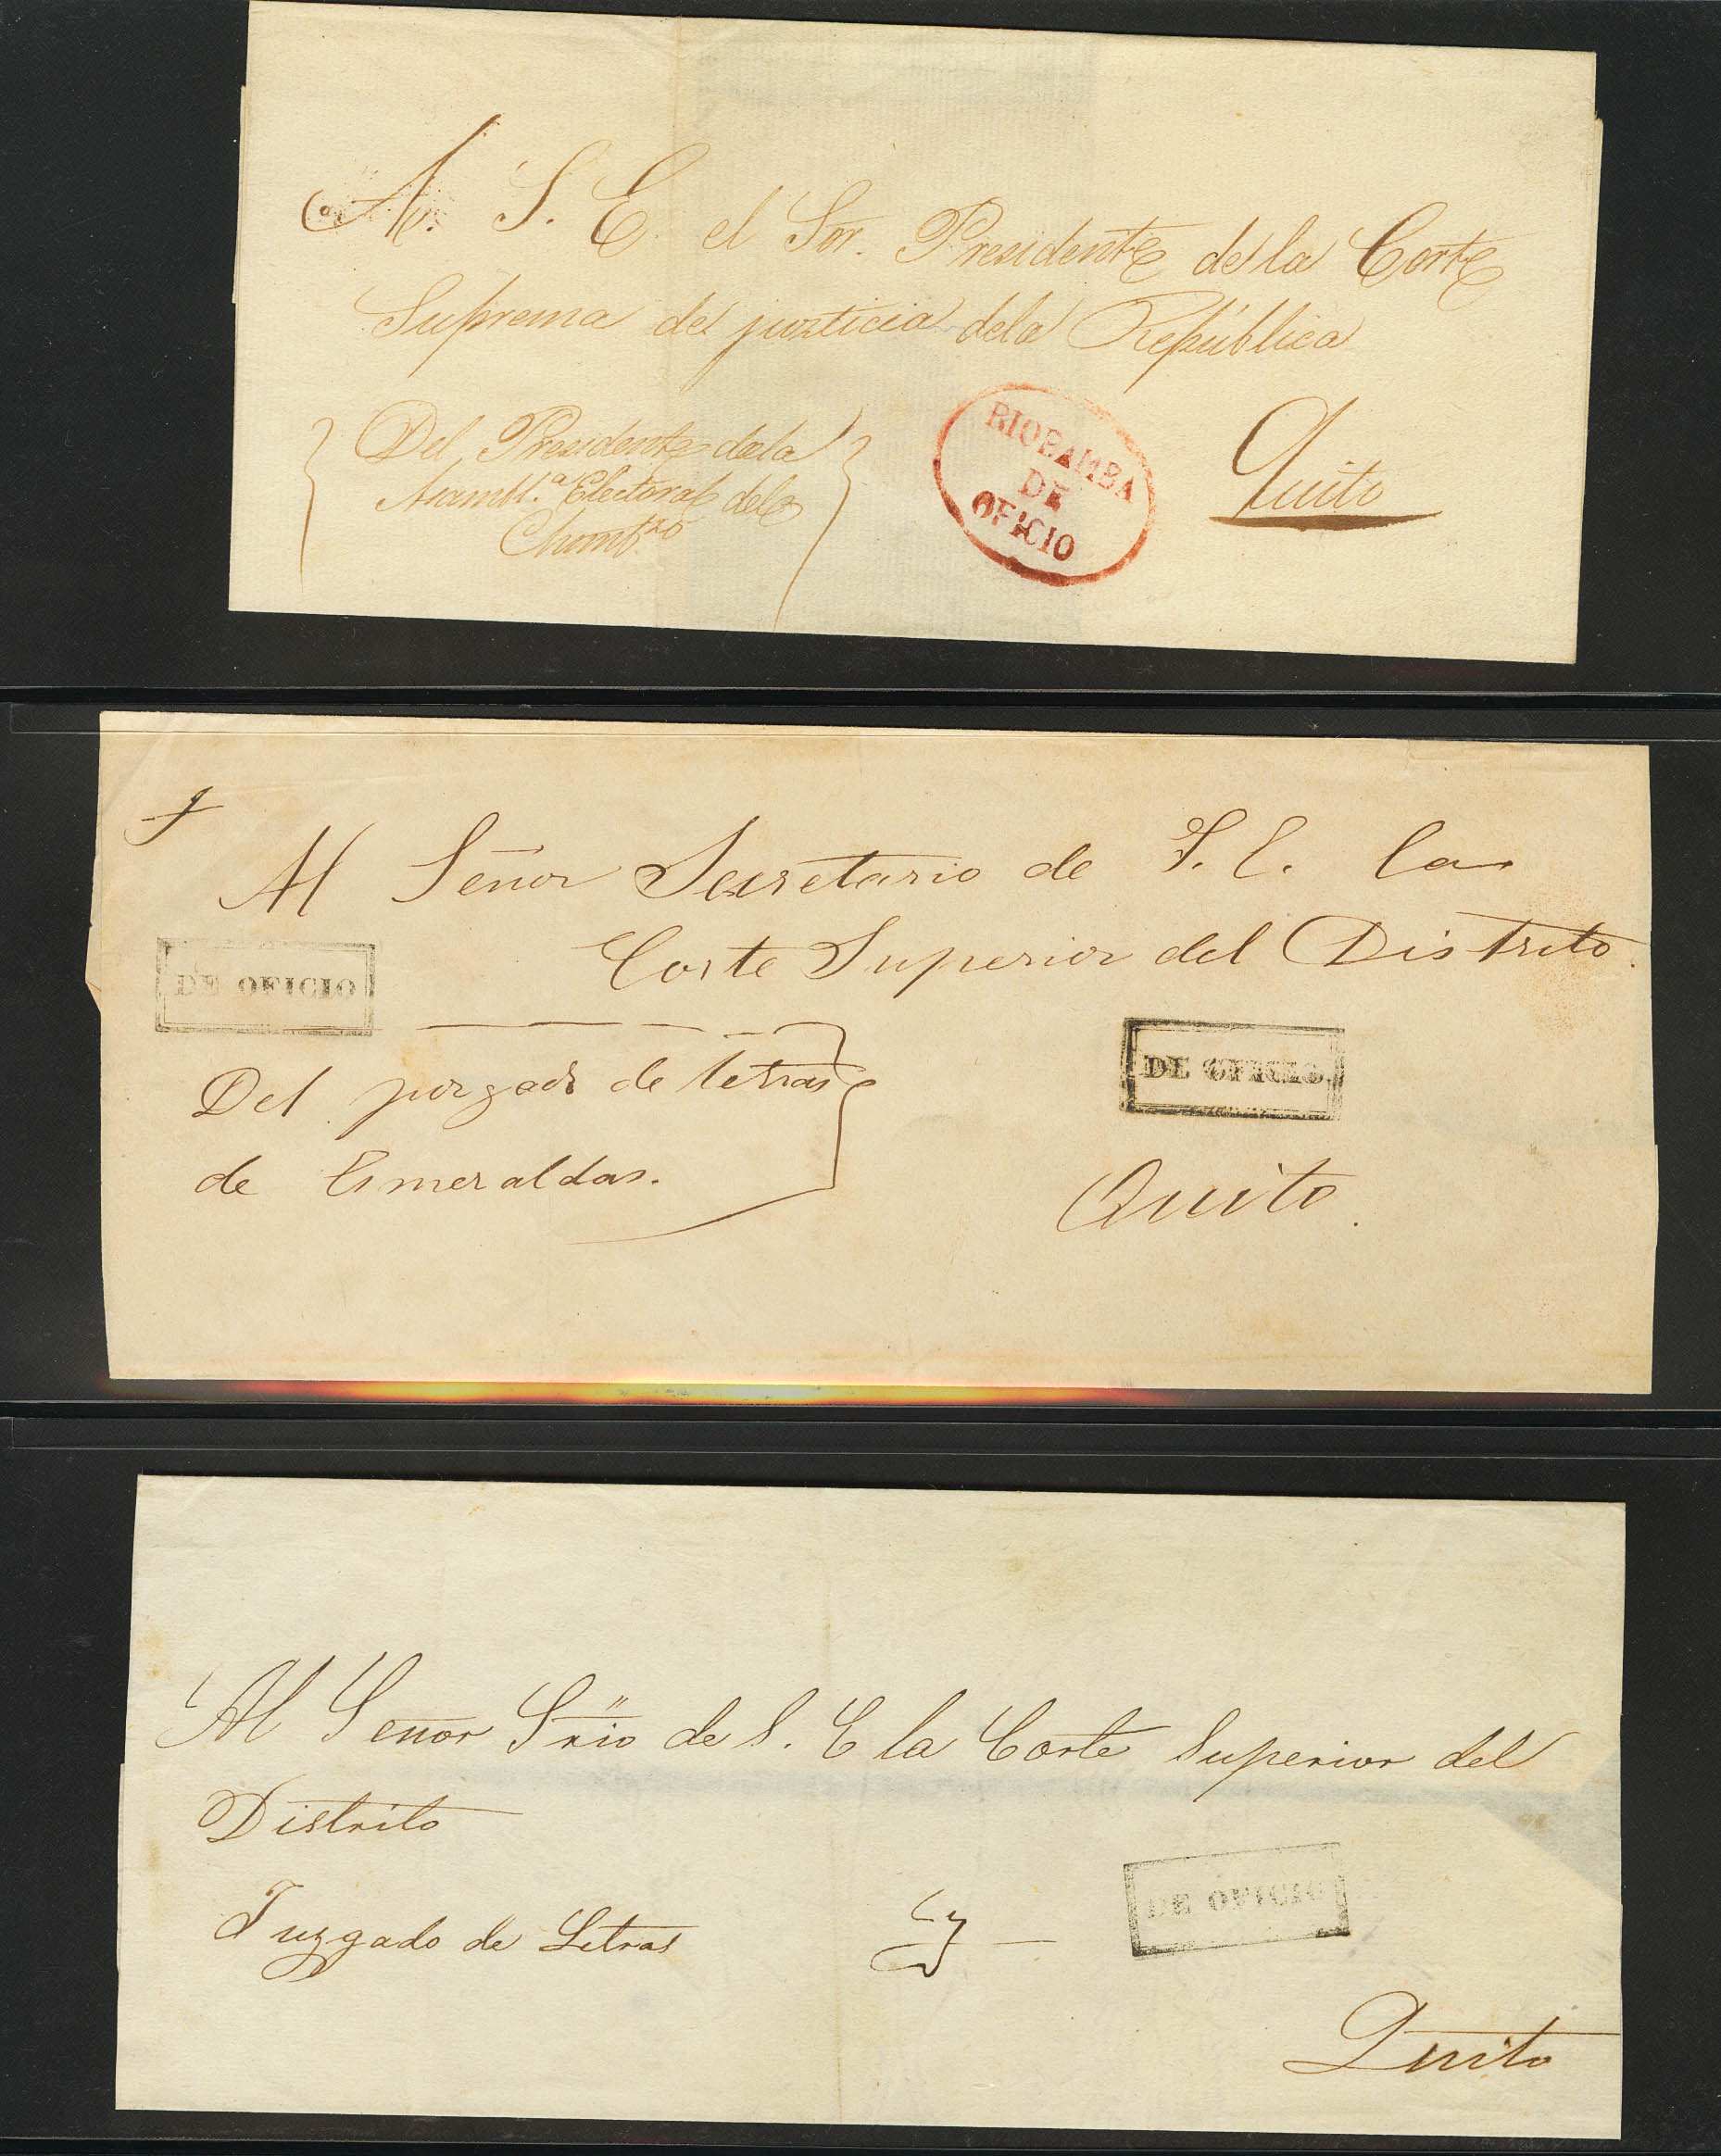 A. S. E. el Sor. Presidente de la Corte
Suprema de justicia dela República
Del Presidente dela
Asambl.ª Electoral del
Chimb.zo
RIOBAMBA
DE
OFICIO
Quito
Al Señor Secretario de S. E. la
Corte Superior del Distrito.
DE OFICIO
DE OFICIO
Del juzgado de letras
de Esmeraldas.
Quito.
Al Señor Srio de S. E la Corte Superior del
Distrito
Juzgado de Letras
DE OFICIO
Quito